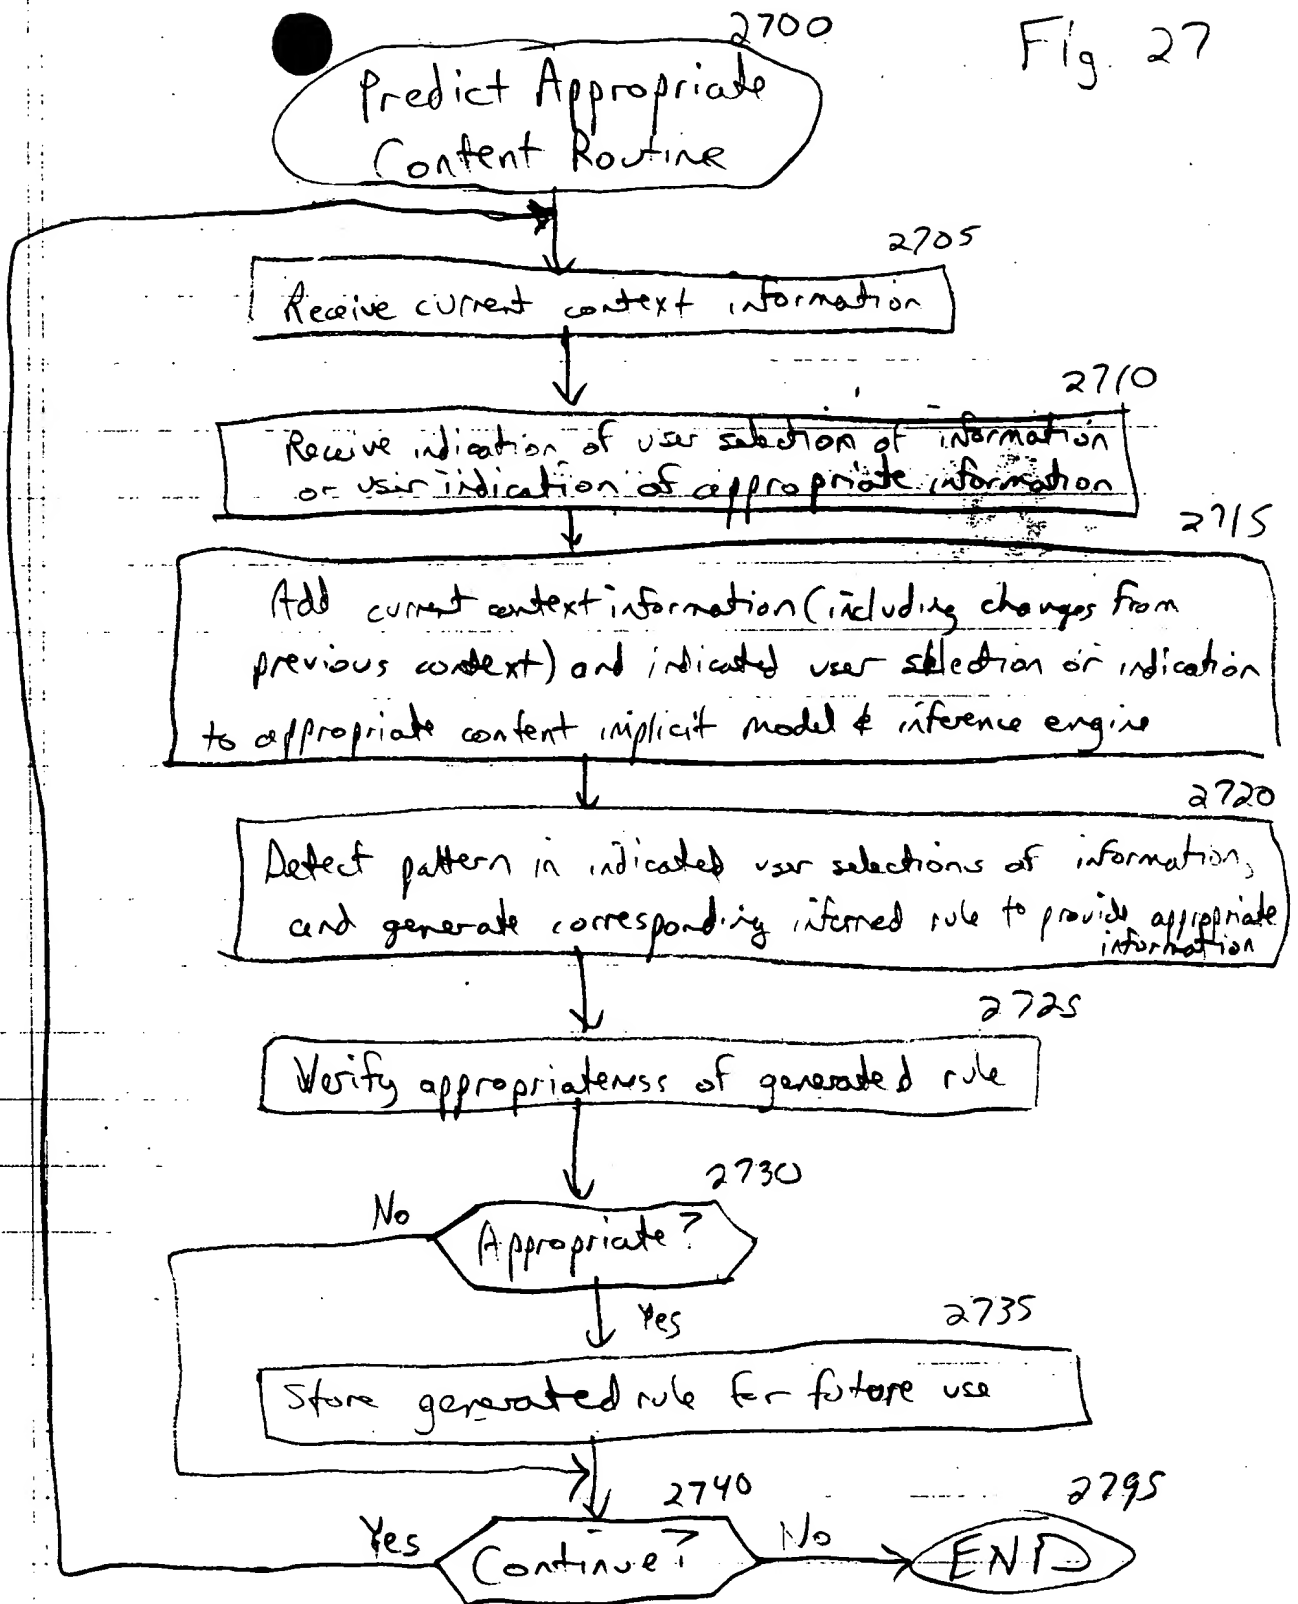 2700
Fig. 27
Predict Appropriate
Content Routine
2705
Receive current context information
2710
Receive indication of user selection of information
or user indication of appropriate information
2715
Add current context information (including changes from
previous context) and indicated user selection or indication
to appropriate content implicit model & inference engine
2720
Detect pattern in indicated user selections of information,
and generate corresponding inferred rule to provide appropriate
information
2725
Verify appropriateness of generated rule
2730
No
Appropriate?
Yes
2735
Store generated rule for future use
2740
2795
Yes
Continue?
No
END